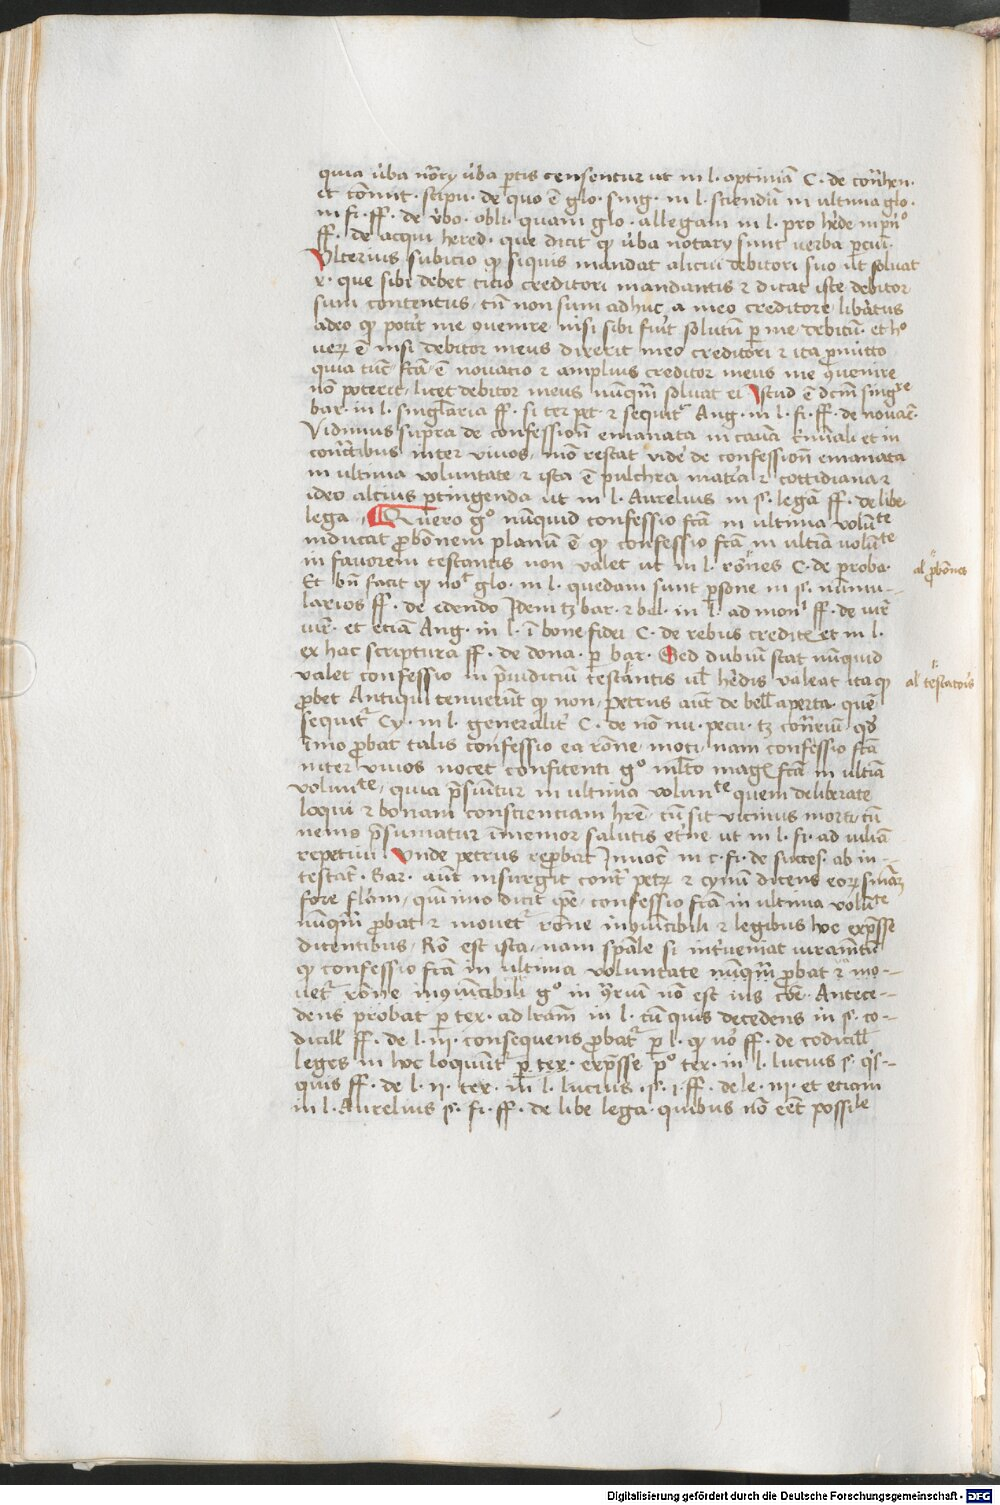 quia v̾ba not̾ij v̾ba ꝑtis censentur ut in l. optimā C. de cont̾hen.
et cōmit. stipu. de quo ē glo. sing. in l. sciendū in ultima glo.
in fi. ff. de v̾bo. obli. quam glo. allegam in l. pro h̾ede in pͥnº
ff. de acqui hered. que dicit ꝙ v̾ba notarij sunt verba parciū.
Vlterius subicio ꝙ siquis mandat alicui debitori suo ut soluat
x. que sibi debet ticio creditori mandantis et dicat iste debitor
sum contentus, tn̄ non sum adhuc a meo creditore lib̾atus
adeo ꝙ pot̾it me ꝯuenire nisi sibi fu̾it solutū ꝑ me debitū. et hº
uerꝝ ē nisi debitor meus dixerit meo creditori et ita ꝓmitto
quia tūc fcā ē nouatio et amplius creditor meus me ꝯuenire
nō poterit, licet debitor meus nūqm̄ soluat ei Istud ē dcm̄ singͬe
bar. in l. singl̾aria ff. si cer pet. et sequitͬ Ang. in l. fi. ff. de nouac̄.
Vidimus supra de confession̄ emanata in causa c̾minali et in
contͨtibus inter viuos, mō restat vide̾ de confession̄ emanata
in ultima voluntate et ista ē pulchra mat̾ia et cottidiana et
ideo alcius ꝑtingenda ut in l. Aurelius in §. legā ff. de libe.
lega. Quero gº nūnquid confessio fcā in ultima volūte
inducat ꝓbōnem planum ē ꝙ confessio fcā in ultīa uolūte
in fauorem testantis non valet ut in l. rōnes C. de proba.
al̾ ꝓbōnes
Et bn̄ facit ꝙ noͭ glo. in l. quedam sunt ꝑsone in §. nūmu-
larios ff. de edendo Idem tꝫ bar. et bal. in l. ad mon̾ ff. de iur̾
iur̾. et eciā Ang. in l. ī bone fidei C. de rebus credit̾ et in l.
ex hac scriptura ff. de dona. ꝑ bar. Sed dubiū stat nūnquid
valet confessio in p̄iudiciū testantis ul̾ h̾edis valeat ita ꝙ
al̾ testatoris
ꝓbet Antiqui tenuerūt ꝙ non, petrus aūt de bell̾ aperta quē
sequitͬ Cy. in l. generalit̾ C. de nō nu. pecu. tꝫ cont̾riū. qd̾
īmo ꝓbat talis confessio ea rōne moti, nam confessio fcā
inter viuos nocet confitenti gº ml̾to mag̾ fcā in ultīa
volunte, quia p̄sumitur in ultima volunte quem deliberate
loqui et bonam conscienciam hr̄e, cū sit vicinus morti, cū
nemo p̄sumatur īmemor salutis et̾ne ut in l. fi. ad iuliā
repetun̄. Vnde petrus reꝓbat Innoc̄ in c. fi. de succes. ab in-
testat̄. Bar. aūt insurgit contͬ petrꝝ et cynū dicens eorꝝ sniāꝫ
fore fl̾am, qui īmo dicit ip̄e, confessio fcā in ultima volūte
nūqm̄ ꝓbat et mouetͬ rōne inꝯuincibili et legibus hoc exp̄sse
dicentibus. Rō est ista, nam spāle si int̾ueniat iuramtū
ꝙ confessio fcā in ultima voluntate nūqm̄ ꝓbat et mo-
uetͬ rōne inꝯuincibili gº in ꝯt̾riū nō est ius cōe. Antece-
dens probat ꝑ tex. ad lr̄am in l. cū quis decedens in §. co-
dicill̾ ff. de l. iij. consequens ꝓbatͬ ꝑ l. ꝙ uo̾ ff. de codicill̾
leges in hoc loquūtͬ ꝑ tex. exp̄sse pº tex. in l. lucius §. qͥs-
quis ff. de l. ij. tex. in l. lucius. §. j. ff. de le. iij. et etiam
in l. Aurelius §. fi. ff. de libe lega. quibus nō eēt possile